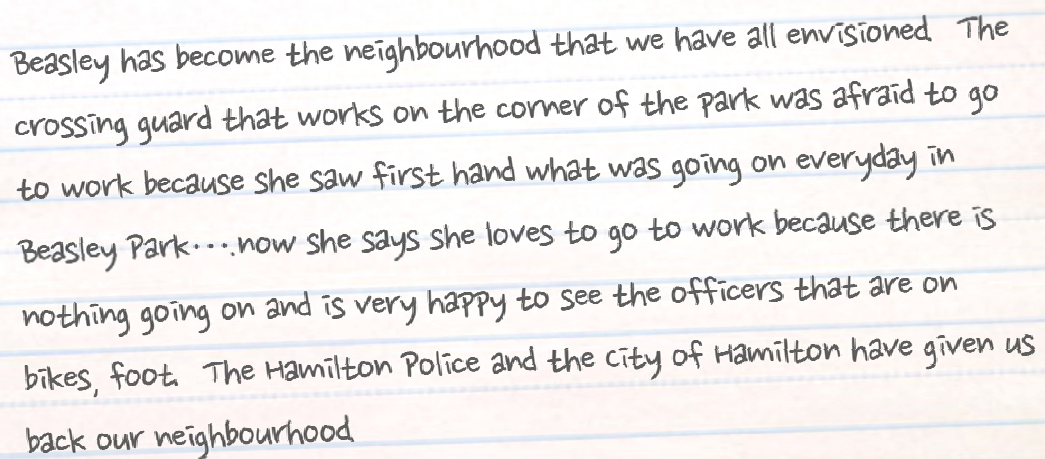 Beasley has become the neighbourhood that we have all envisioned The
crossing guard that works on the corner of the park was afraid to go
to work because she saw first hand what was going on everyday in
Beasley Park....now she says she loves to go to work because there is
nothing going on and is very happy to see the officers that are on
bikes, foot. The Hamilton Police and the city of Hamilton have given us
back our neighbourhood